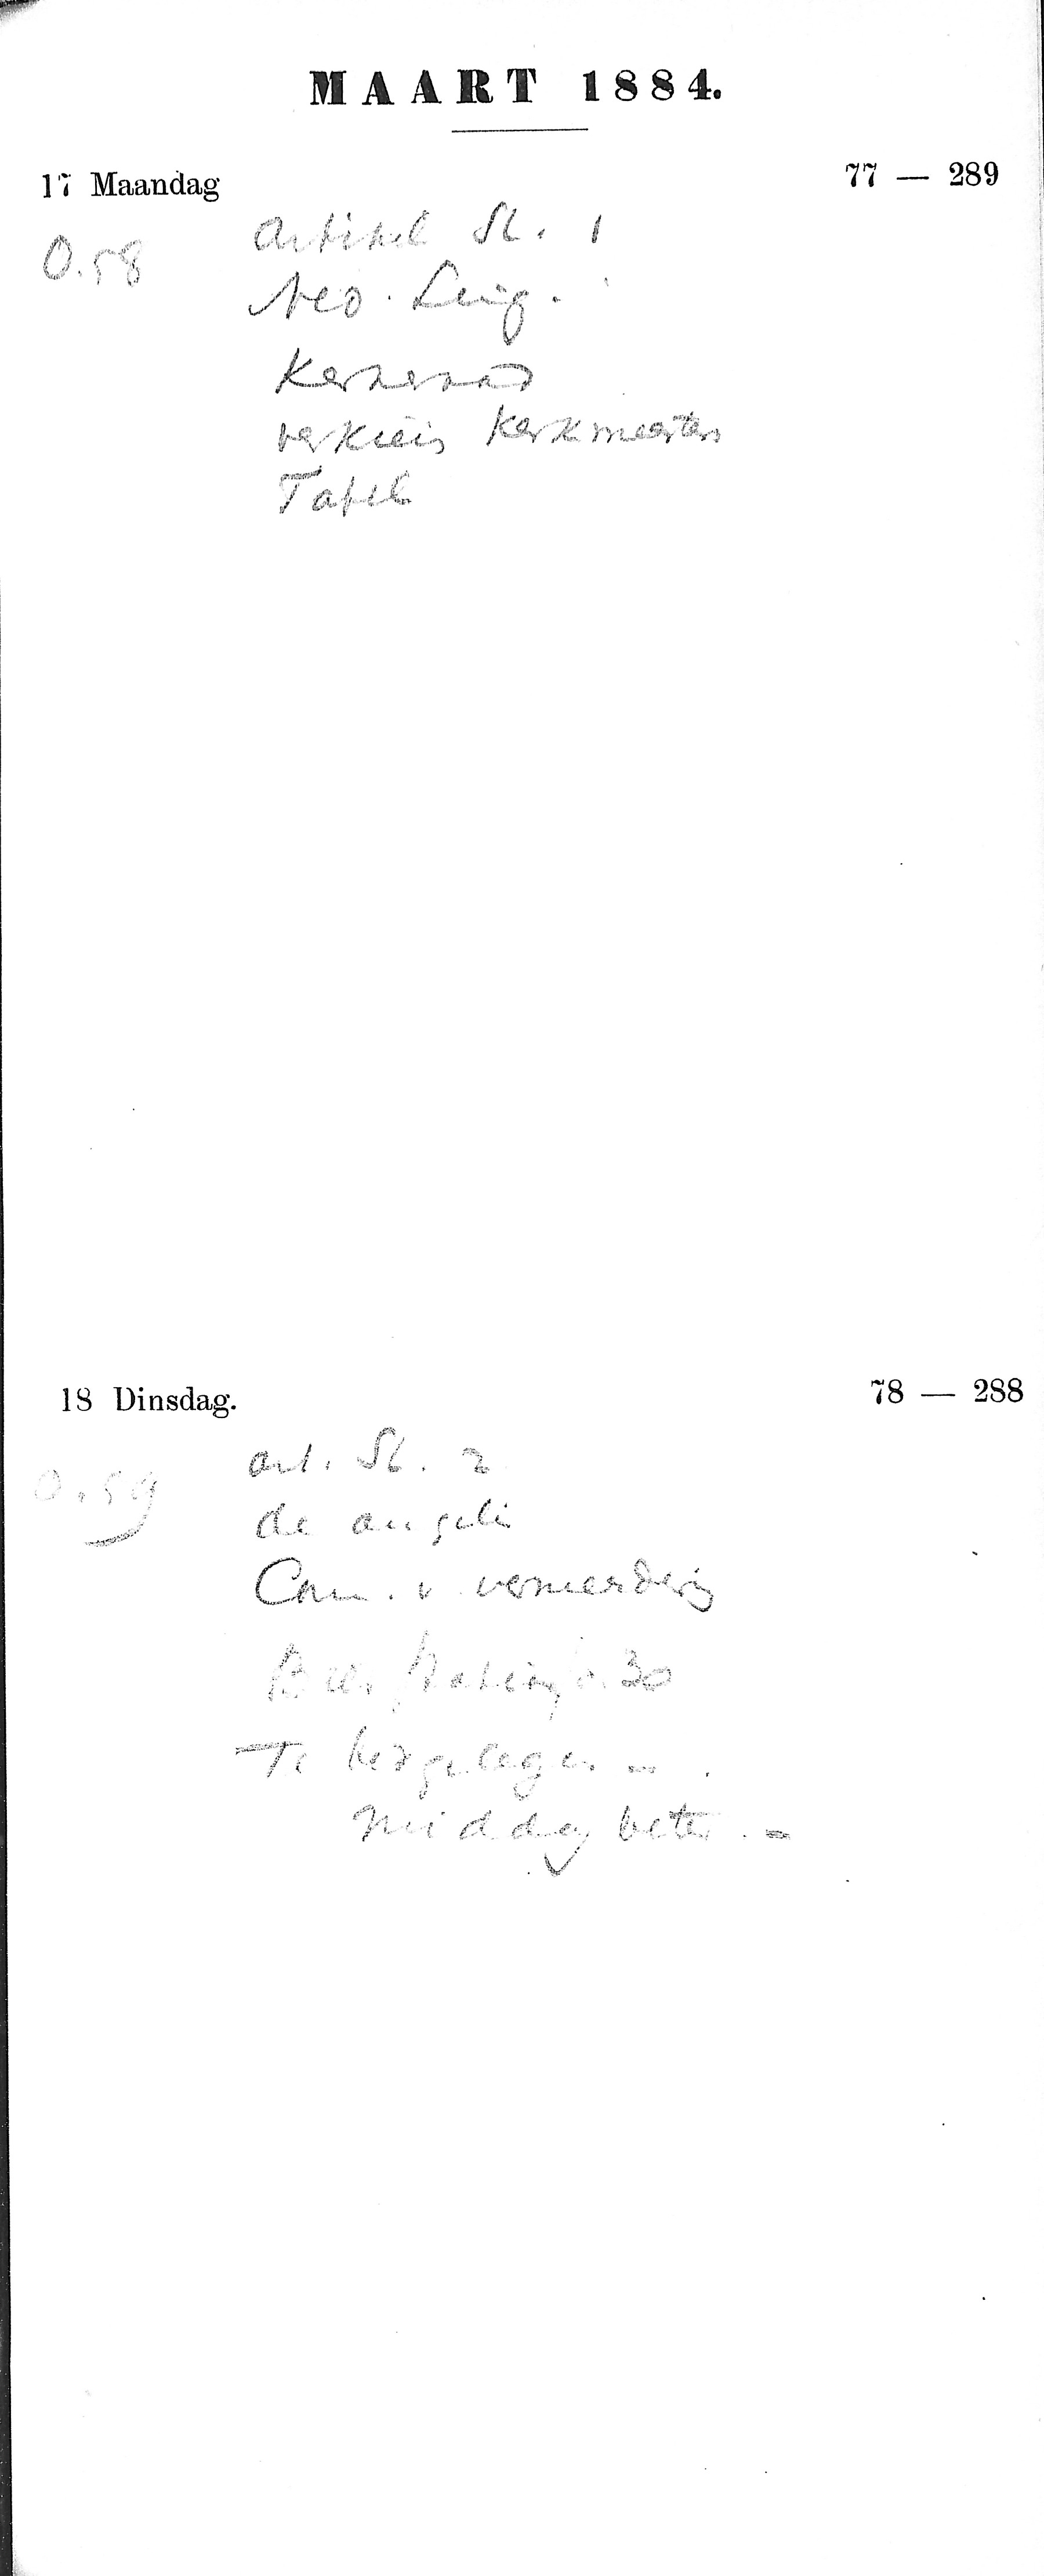 MAART 1884.
17 Maandag 77 — 289
0.58 Artikel St. 1
Neo. Ling.
Kerkeraad
verkiezing Kerkmeesters
Tafel
18 Dinsdag. 78 — 288
0.59 art. St. 2
de
Com. v
30
Te bed gelegen
middag beter. =